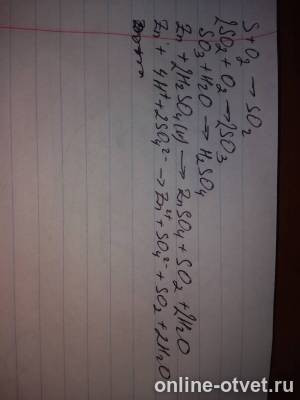 S + O₂ → SO₂
2SO₂ + O₂ → 2SO₃
SO₃ + H₂O → H₂SO₄
Zn + 2H₂SO₄(к) → ZnSO₄ + SO₂ + 2H₂O
Zn + 4H⁺ + 2SO₄²⁻ → Zn²⁺ + SO₄²⁻ + SO₂ + 2H₂O
online-otvet.ru